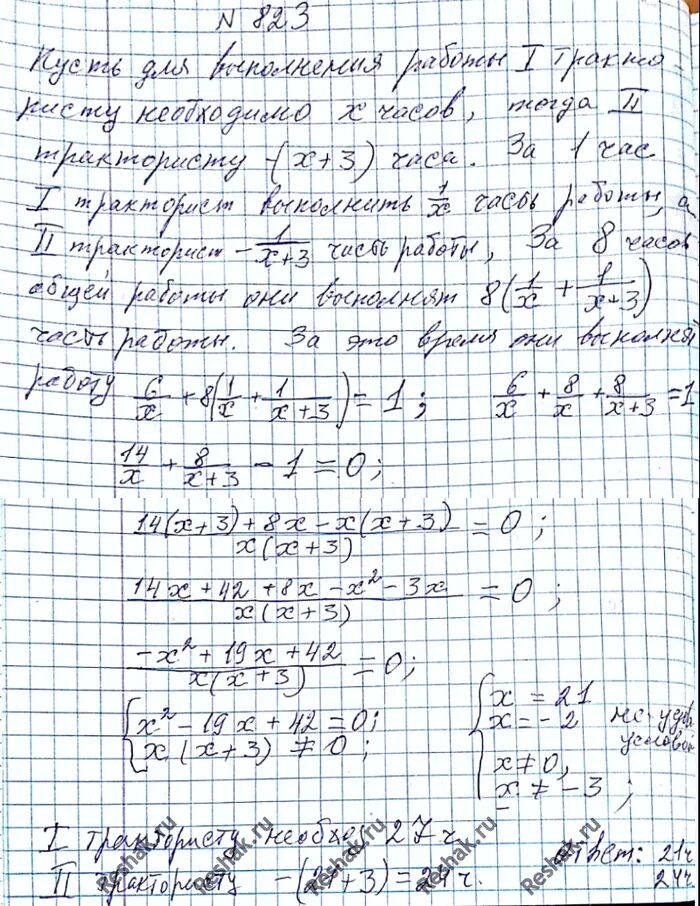 N 823
Пусть для выполнения работы I тракто-
ристу необходимо x часов, тогда II
трактористу - (x+3) часа. За 1 час
I тракторист выполнить 1/x часть работы, а
II тракторист - 1/(x+3) часть работы, За 8 часов
общей работы они выполнят 8(1/x + 1/(x+3))
часть работы. За это время они выполнят
работу 6/x + 8(1/x + 1/(x+3)) = 1; 6/x + 8/x + 8/(x+3) = 1
14/x + 8/(x+3) - 1 = 0;
(14(x+3) + 8x - x(x+3))/(x(x+3)) = 0;
(14x + 42 + 8x - x² - 3x)/(x(x+3)) = 0;
(-x² + 19x + 42)/(x(x+3)) = 0;
{ x² - 19x + 42 = 0; x(x+3) ≠ 0;
{ x = 21 x = -2 не удов условою x ≠ 0, x ≠ -3;
I трактористу необход 27 ч.
II трактористу - (21+3) = 24 ч.
Ответ: 21ч
24ч
Reshak.ru
Reshak.ru
Reshak.ru
Reshak.ru